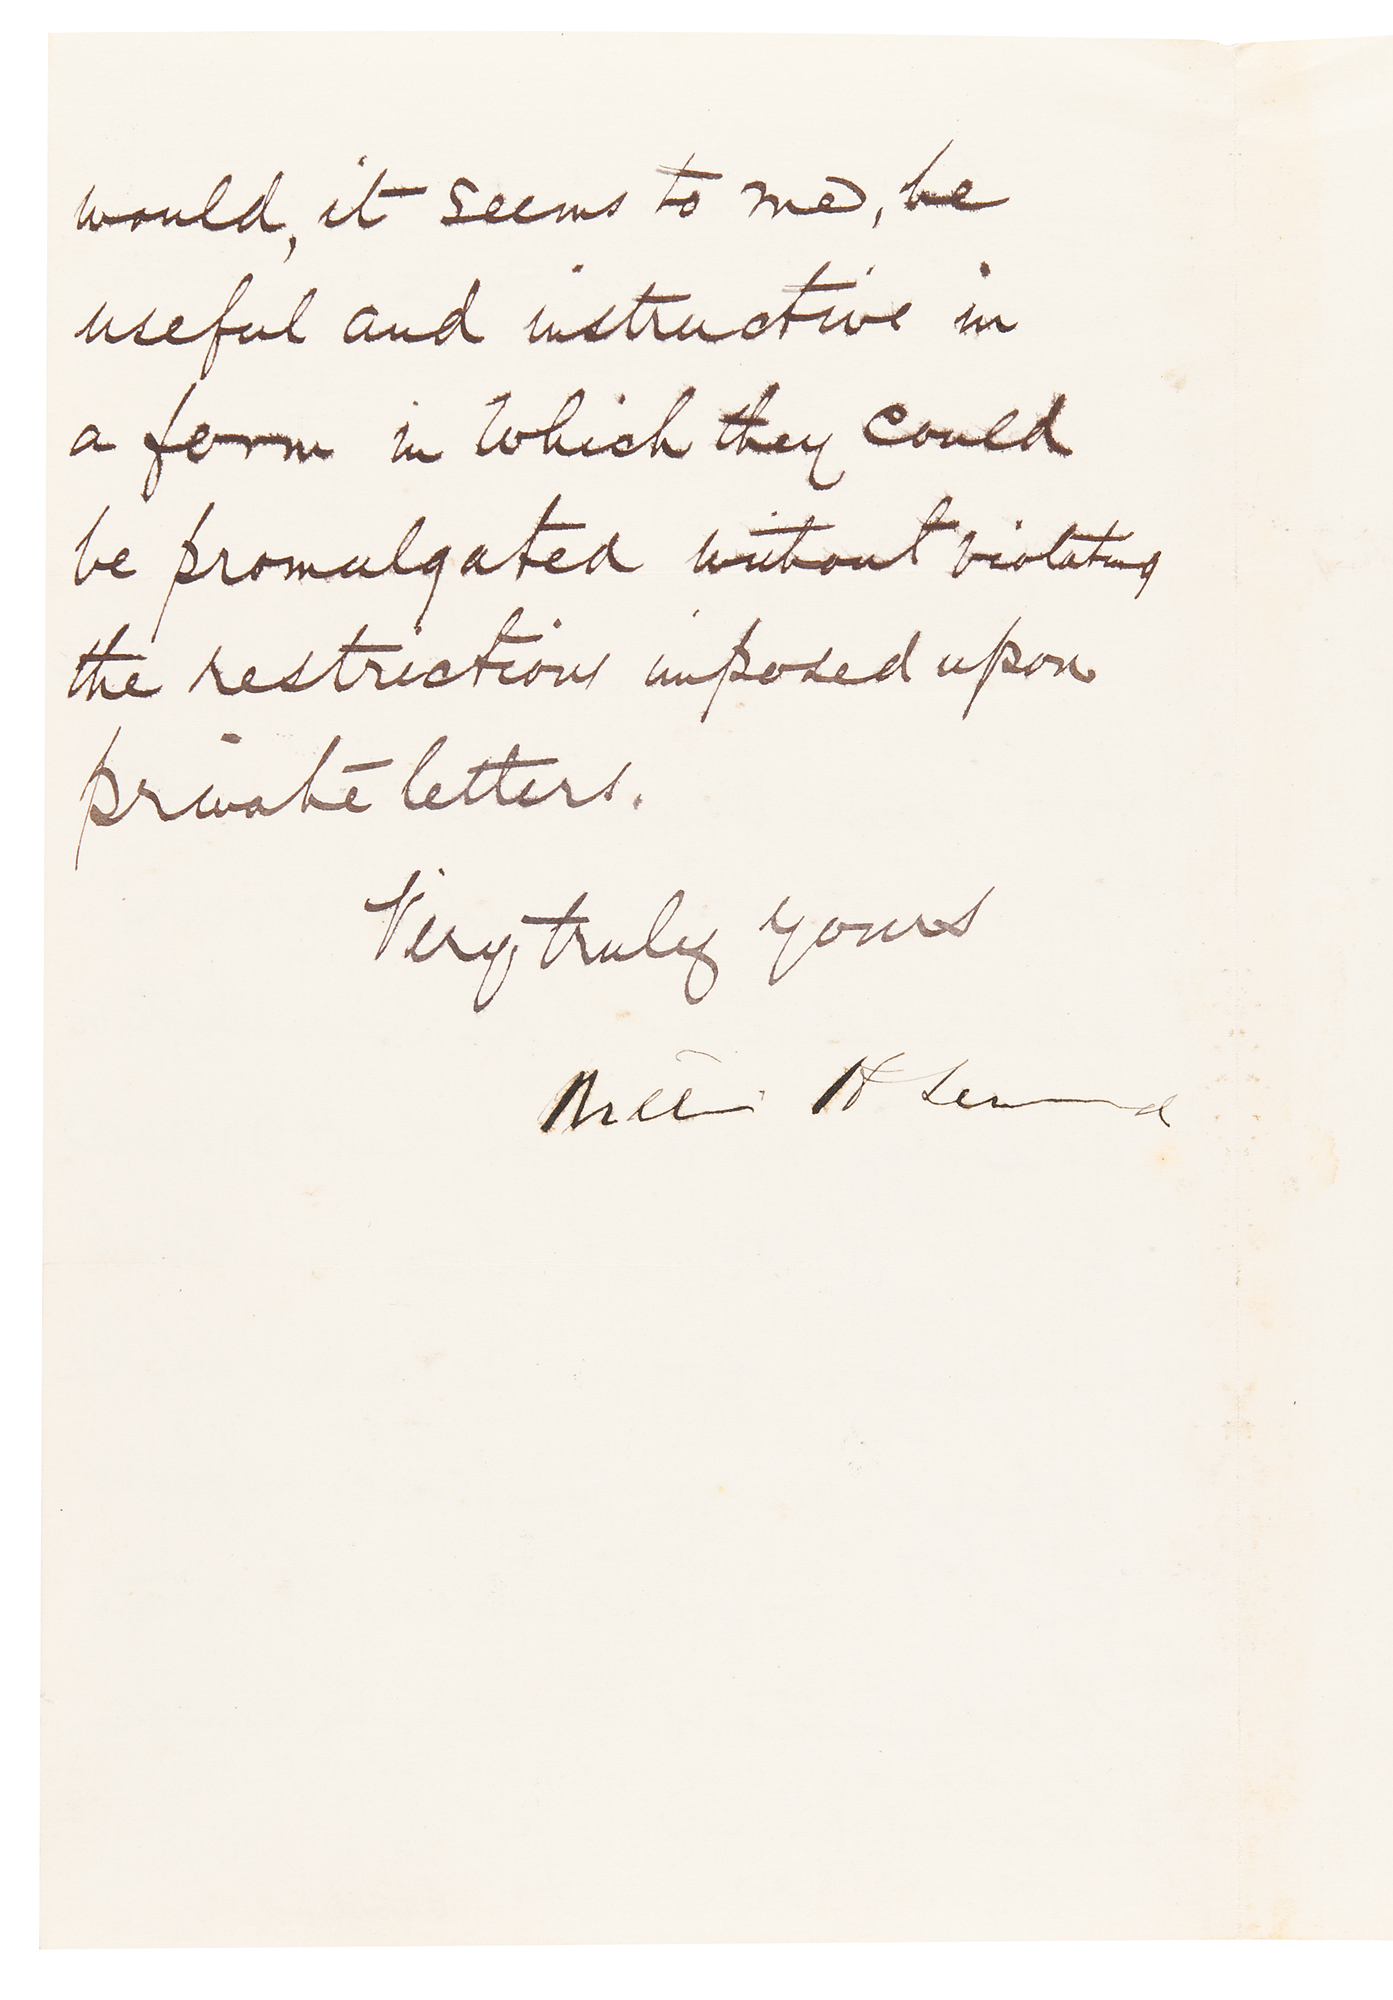 would, it seems to me, be
useful and instructive in
a form in which they could
be promulgated without violating
the restrictions imposed upon
private letters.
Very truly yours
William H Seward